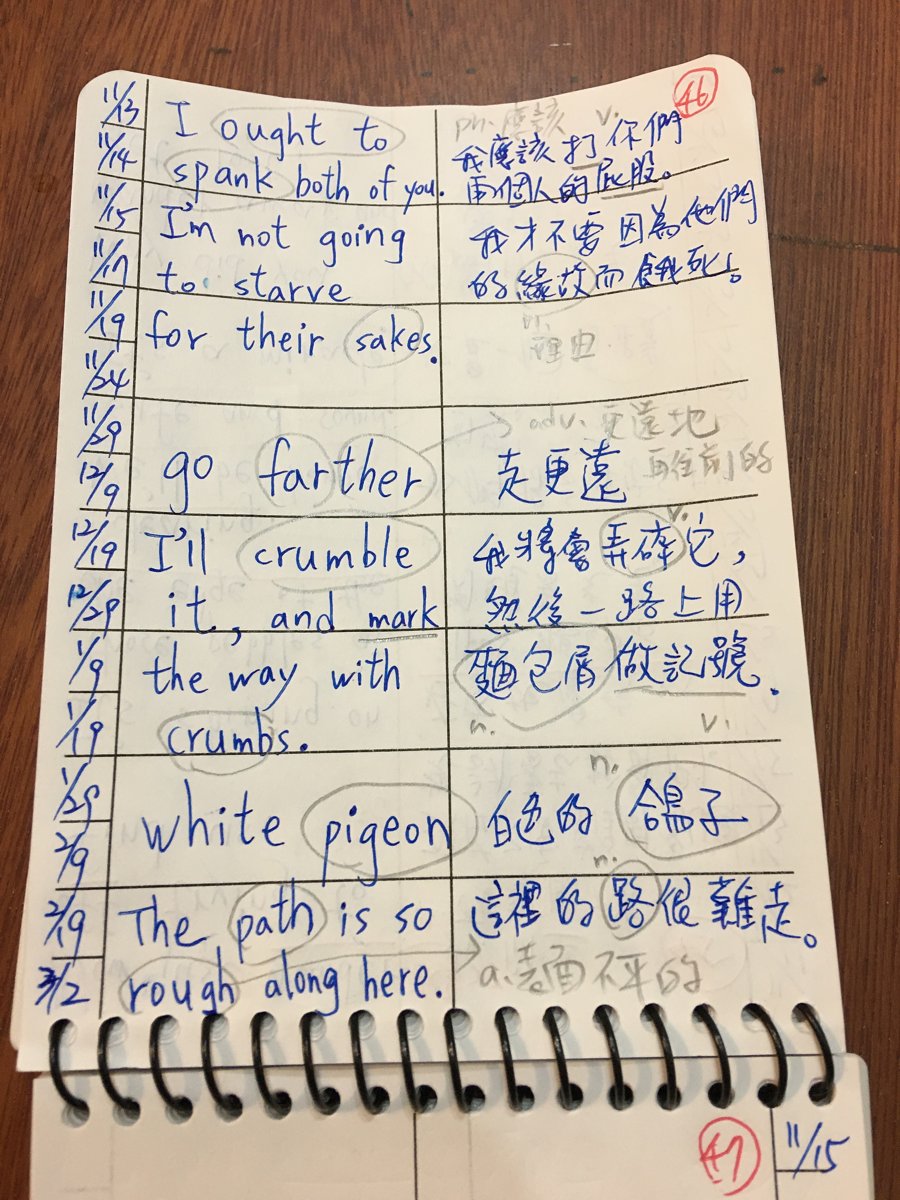 46
11/13
I ought to
ph. 應該 v.
我應該打你們
11/14
spank both of you.
兩個人的屁股。
11/15
I'm not going
我才不要因為他們
11/17
to starve
的緣故而餓死!。
11/19
for their sakes.
n.
理由
11/24
11/29
adv. 更遠地
12/9
go farther
走更遠
再往前的
12/19
I'll crumble
v.
我將會弄碎它，
12/29
it, and mark
然後一路上用
1/9
the way with
麵包屑做記號.
1/19
crumbs.
n.
v.
1/29
n.
white pigeon
白色的 鴿子
2/9
n.
2/19
The path is so
這裡的路很難走。
3/2
rough along here.
a. 表面不平的
47
11/15